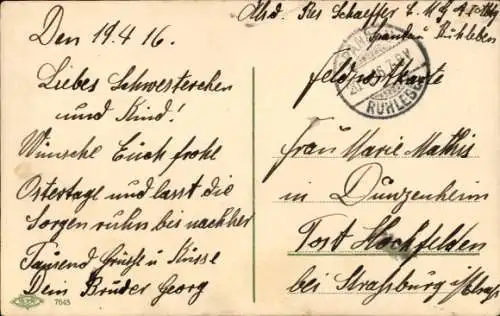 Den 19.4.16.
Liebes Schwesterchen
und Kind!
Wünsche Euch frohe
Ostertage und lasst die
Sorgen ruhn bis nachher
Tausend Grüsse u Küsse
Dein Bruder Georg
7045
Abs. Res Schaeffer
Spandau Ruhleben
Feldpostkarte
RUHLEBEN
Frau Marie Mathis
in Dunzenheim
Post Hochfelden
bei Straßburg i/Elsass